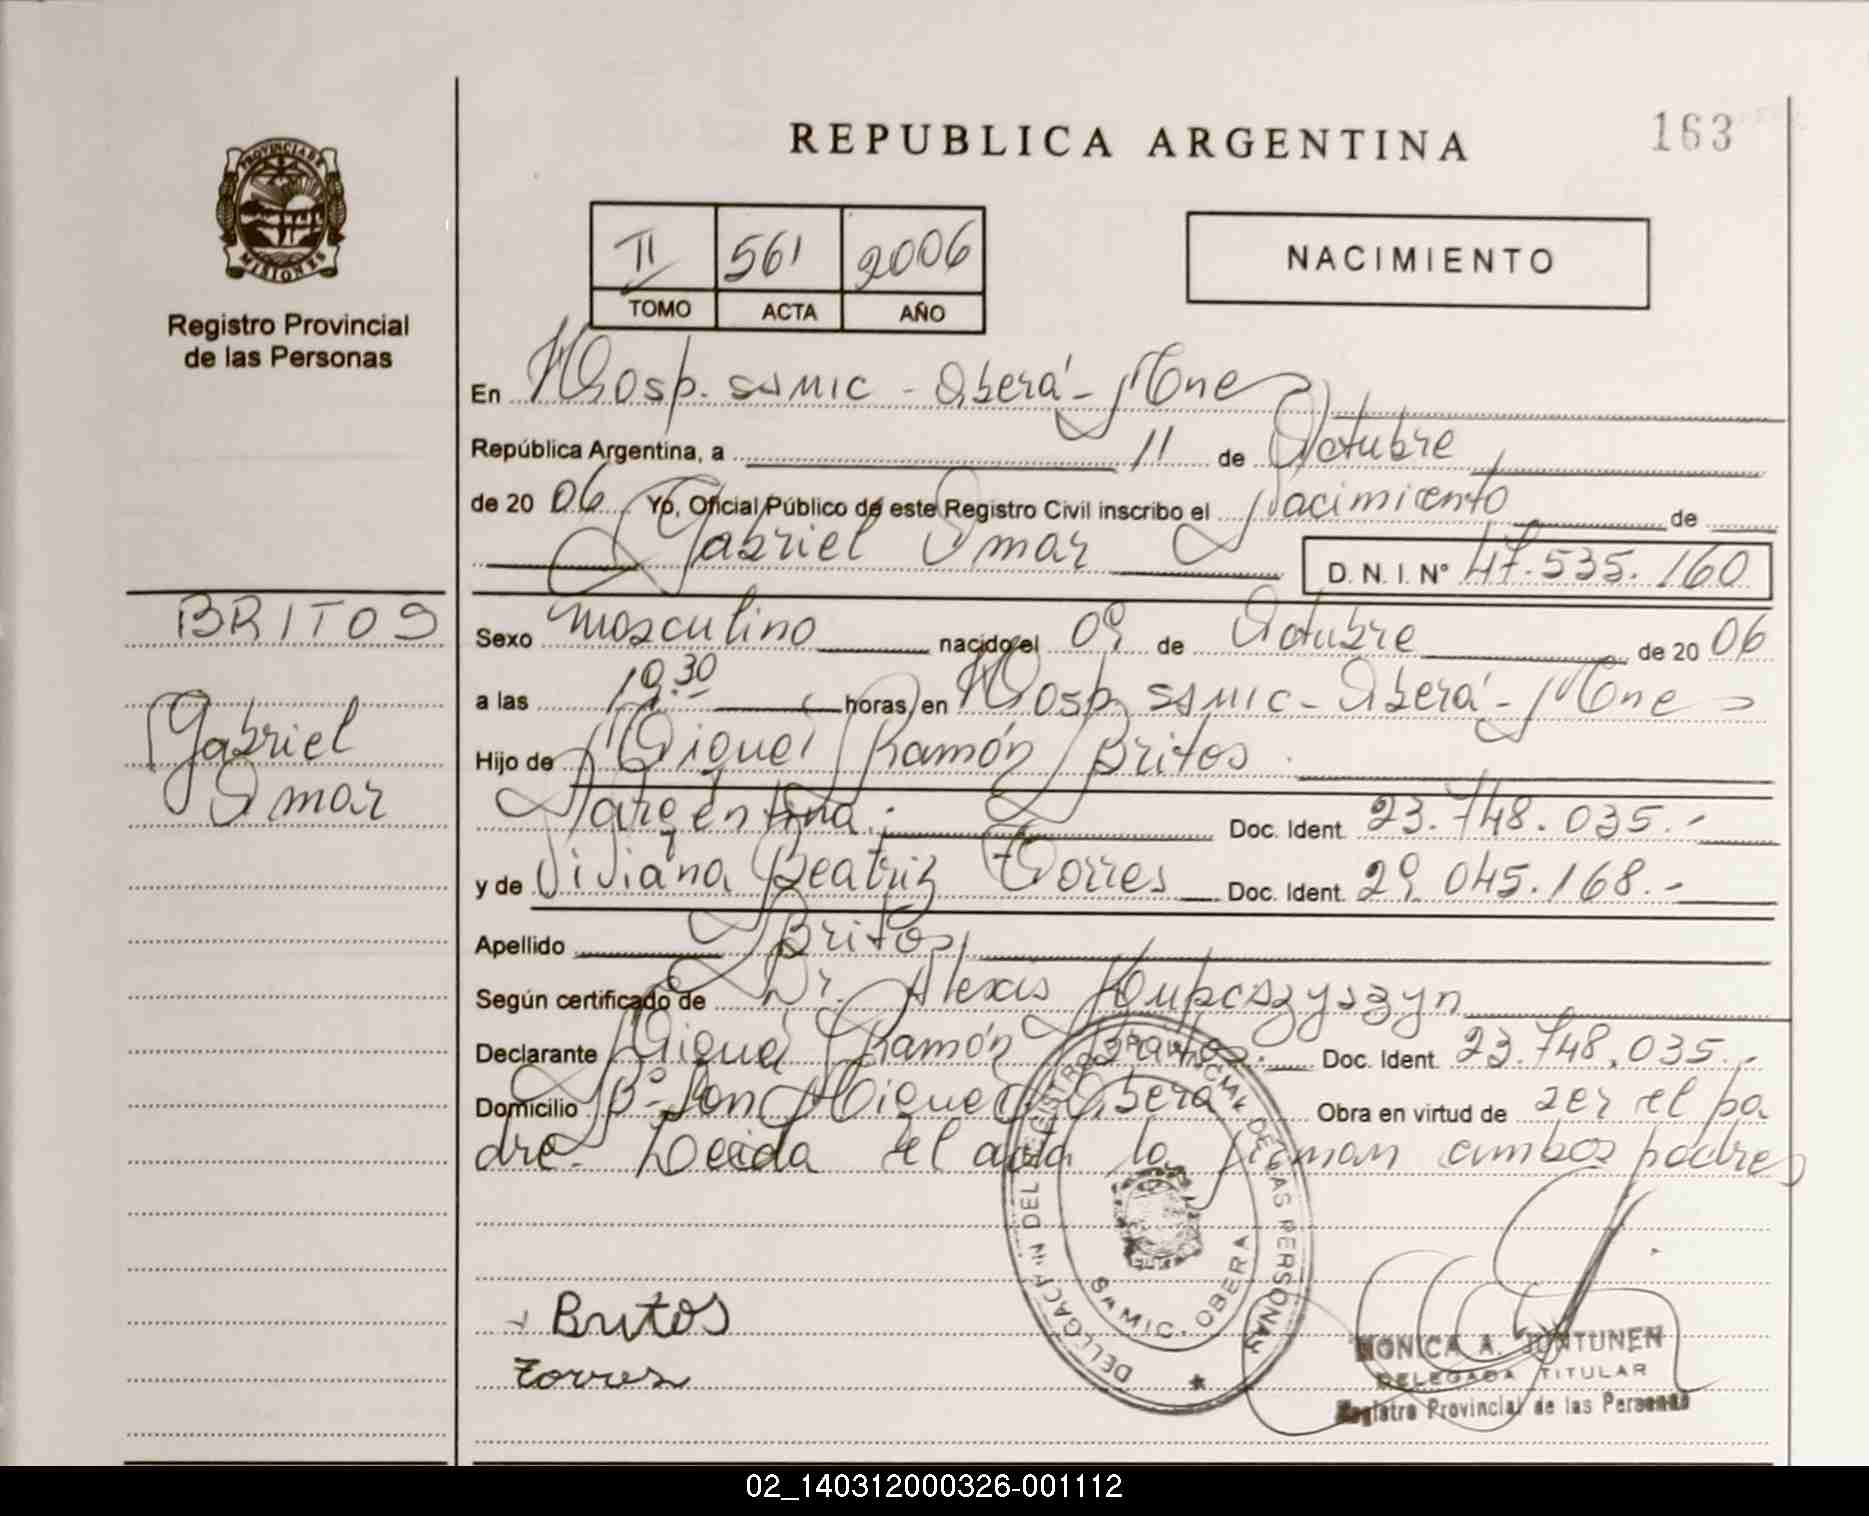 REPUBLICA ARGENTINA
163
PROVINCIA DE
MISIONES
Registro Provincial
de las Personas
II 561 2006
TOMO ACTA AÑO
NACIMIENTO
En Hosp. SAMIC - Oberá - Mnes
República Argentina, a 11 de Octubre
de 20 06 Yo, Oficial Público de este Registro Civil inscribo el Nacimiento de
Gabriel Omar D. N. I. N° 47.535.160
BRITOS
Gabriel
Omar
Sexo masculino nacido el 09 de Octubre de 20 06
a las 19.30 horas, en Hosp. SAMIC - Oberá - Mnes
Hijo de Miguel Ramón Britos
Argentina. Doc. Ident. 23.748.035.-
y de Viviana Beatriz Torres Doc. Ident. 29.045.168.-
Apellido Britos
Según certificado de Dr. Alexis
Declarante Miguel Ramón Britos. Doc. Ident. 23.748.035.-
Domicilio B° San Miguel Oberá Obra en virtud de ser el pa
dre. Leida el acta la firman ambos padres
DELEGACIÓN DEL REGISTRO PROVINCIAL DE LAS PERSONAS
SAMIC. OBERA
Britos
Torres
MONICA A. JUNTUNEN
DELEGADA TITULAR
Registro Provincial de las Personas
02_140312000326-001112